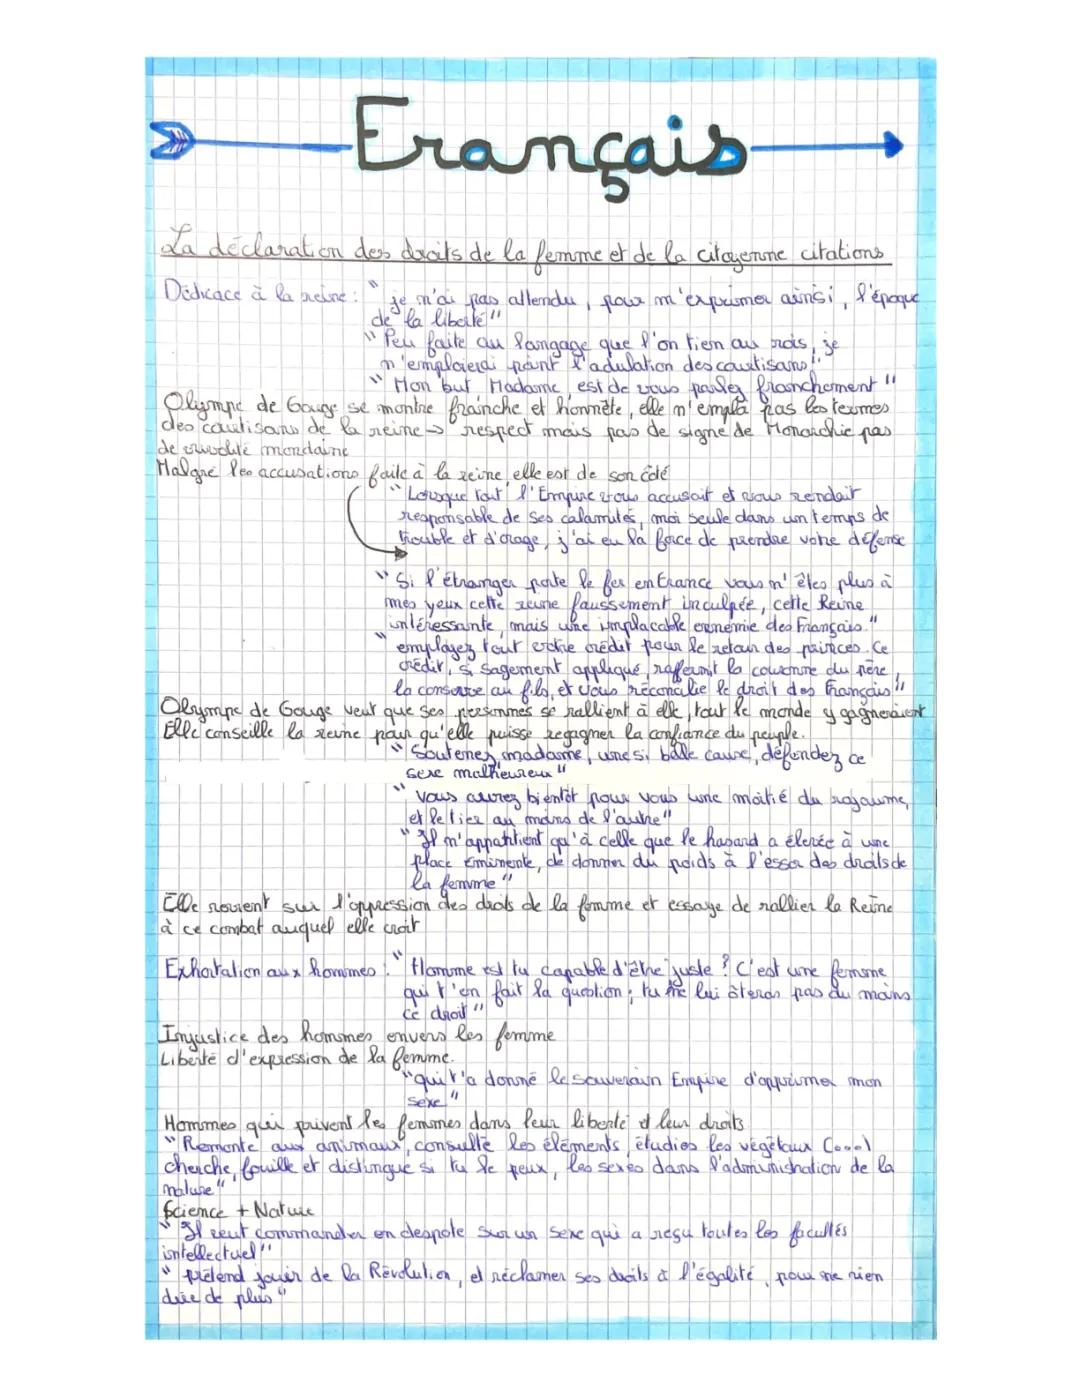 Français
La déclaration des droits de la femme et de la citoyenne citations
Dédicace à la reine : " je n'ai pas attendu, pour m'exprimer ainsi, l'époque
de la liberté"
" Peu faite au langage que l'on tien au rois, je
n'emploierai point l'adulation des courtisans"
" Mon but Madame, est de vous parlez franchement"
Olympe de Gouge se montre frainche et honnête, elle n'empla pas les termes
des courtisans de la reine → respect mais pas de signe de Monarchie pas
de mondaine
Malgré les accusations faite à la reine, elle est de son côté
" Lorsque tout l'Empire vous accusait et vous rendait
responsable de ses calamités, moi seule dans un temps de
trouble et d'orage, j'ai eu la force de prendre votre défense
" Si l'étranger porte le fer en France vous n'êtes plus à
mes yeux cette reine faussement inculpée, cette Reine
intéressante, mais une implacable ennemie des Français."
" employez tout votre crédit pour le retour des princes. Ce
crédit, si sagement appliqué, raffermit la couronne du père,
la conserve au fils, et vous réconcilie le droit des Français"
Olympe de Gouge veut que ses personnes se rallient à elle, tout le monde y gagneraient
Elle conseille la reine pour qu'elle puisse regagner la confiance du peuple.
" Soutenez, madame, une si belle cause, défendez ce
sexe malheureux"
" Vous aurez bientôt pour vous une moitié du royaume,
et le tier au moins de l'autre"
" Il n'appartient qu'à celle que le hasard a élevée à une
place éminente, de donner du poids à l'éssor des droits de
la femme"
Elle revient sur l'oppression des droits de la femme et essaye de rallier la Reine
à ce combat auquel elle croit
Exhortation aux hommes : " Homme est tu capable d'être juste ? C'est une femme
qui t'en fait la question ; tu ne lui ôteras pas du moins
ce droit"
Injustice des hommes envers les femme
Liberté d'expression de la femme.
"qui t'a donné le souverain Empire d'opprimer mon
sexe"
Hommes qui privent les femmes dans leur liberté et leur droits
" Remonte aux animaux, consulte les éléments, étudies les végétaux (...)
cherche, fouille et distingue si tu le peux, les sexes dans l'administration de la
nature"
Science + Nature
" Il veut commander en despote sur un sexe qui a reçu toutes les facultés
intellectuel"
" prétend jouir de la Révolution, et réclamer ses droits à l'égalité, pour ne rien
dire de plus"